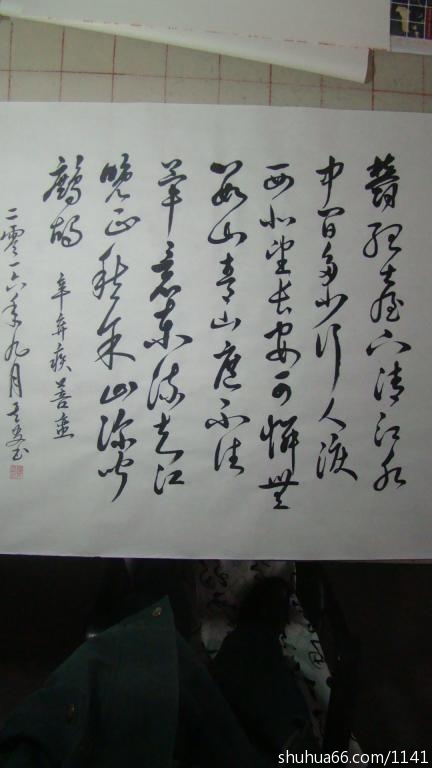 鬱孤臺下清江水
中間多少行人淚
西北望长安可憐無
数山青山遮不住
畢竟东流去江
晚正愁余山深闻
鹧鸪 辛弃疾菩
二零一六年九月
shuhua66.com/1141